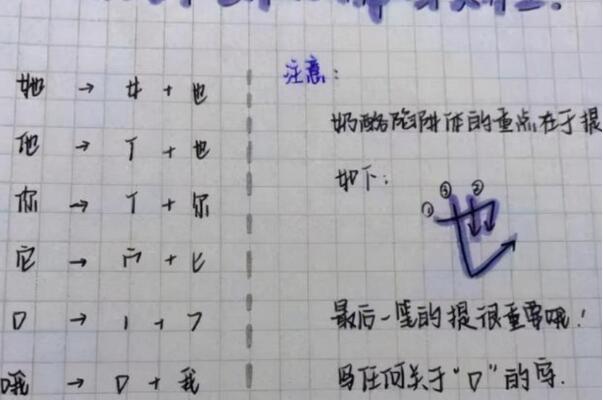 她 → 女 + 也
他 → 亻 + 也
你 → 亻 + 尔
它 → 宀 + 匕
口 → 丨 + フ
哦 → 口 + 我
注意:
奶酪陷阱体的重点在于提
如下:
① ③ ②
也
最后一笔的提很重要哦!
写任何关于“口”的字.